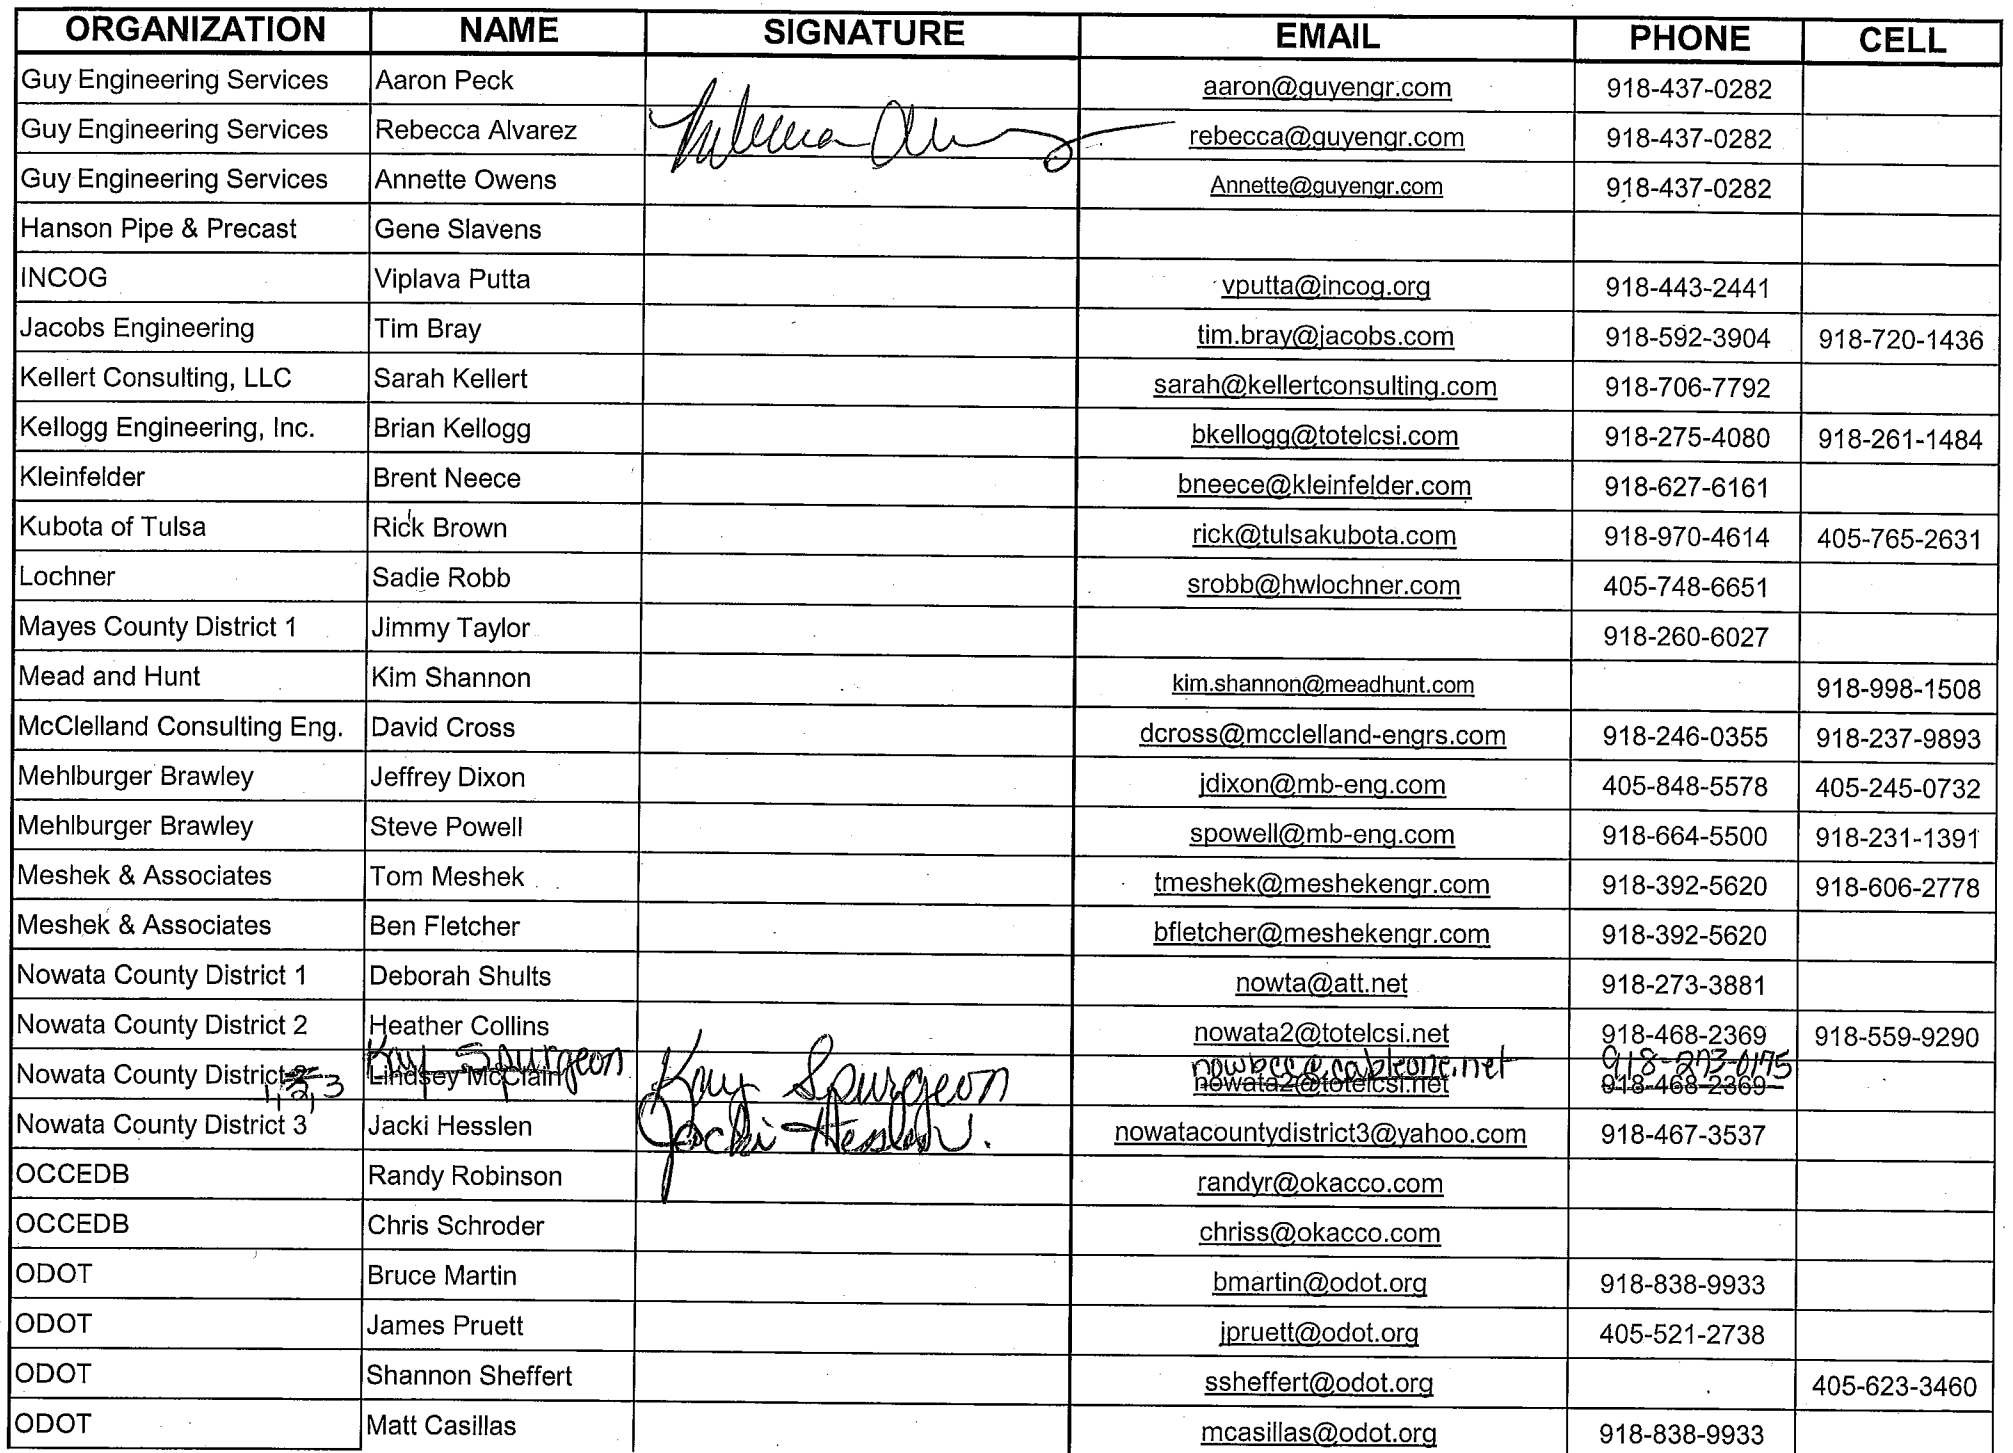 ORGANIZATION NAME SIGNATURE EMAIL PHONE CELL
Guy Engineering Services Aaron Peck aaron@guyengr.com 918-437-0282
Guy Engineering Services Rebecca Alvarez Rebecca Alvarez rebecca@guyengr.com 918-437-0282
Guy Engineering Services Annette Owens Annette@guyengr.com 918-437-0282
Hanson Pipe & Precast Gene Slavens
INCOG Viplava Putta vputta@incog.org 918-443-2441
Jacobs Engineering Tim Bray tim.bray@jacobs.com 918-592-3904 918-720-1436
Kellert Consulting, LLC Sarah Kellert sarah@kellertconsulting.com 918-706-7792
Kellogg Engineering, Inc. Brian Kellogg bkellogg@totelcsi.com 918-275-4080 918-261-1484
Kleinfelder Brent Neece bneece@kleinfelder.com 918-627-6161
Kubota of Tulsa Rick Brown rick@tulsakubota.com 918-970-4614 405-765-2631
Lochner Sadie Robb srobb@hwlochner.com 405-748-6651
Mayes County District 1 Jimmy Taylor 918-260-6027
Mead and Hunt Kim Shannon kim.shannon@meadhunt.com 918-998-1508
McClelland Consulting Eng. David Cross dcross@mcclelland-engrs.com 918-246-0355 918-237-9893
Mehlburger Brawley Jeffrey Dixon jdixon@mb-eng.com 405-848-5578 405-245-0732
Mehlburger Brawley Steve Powell spowell@mb-eng.com 918-664-5500 918-231-1391
Meshek & Associates Tom Meshek tmeshek@meshekengr.com 918-392-5620 918-606-2778
Meshek & Associates Ben Fletcher bfletcher@meshekengr.com 918-392-5620
Nowata County District 1 Deborah Shults nowta@att.net 918-273-3881
Nowata County District 2 Heather Collins nowata2@totelcsi.net 918-468-2369 918-559-9290
Kay Spurgeon nowbcc@cableone.net 918-273-0175
Nowata County District 2 Lindsey McClain Kay Spurgeon nowata2@totelcsi.net 918-468-2369
1,2,3
Nowata County District 3 Jacki Hesslen Jacki Hesslen. nowatacountydistrict3@yahoo.com 918-467-3537
OCCEDB Randy Robinson randyr@okacco.com
OCCEDB Chris Schroder chriss@okacco.com
ODOT Bruce Martin bmartin@odot.org 918-838-9933
ODOT James Pruett jpruett@odot.org 405-521-2738
ODOT Shannon Sheffert ssheffert@odot.org 405-623-3460
ODOT Matt Casillas mcasillas@odot.org 918-838-9933